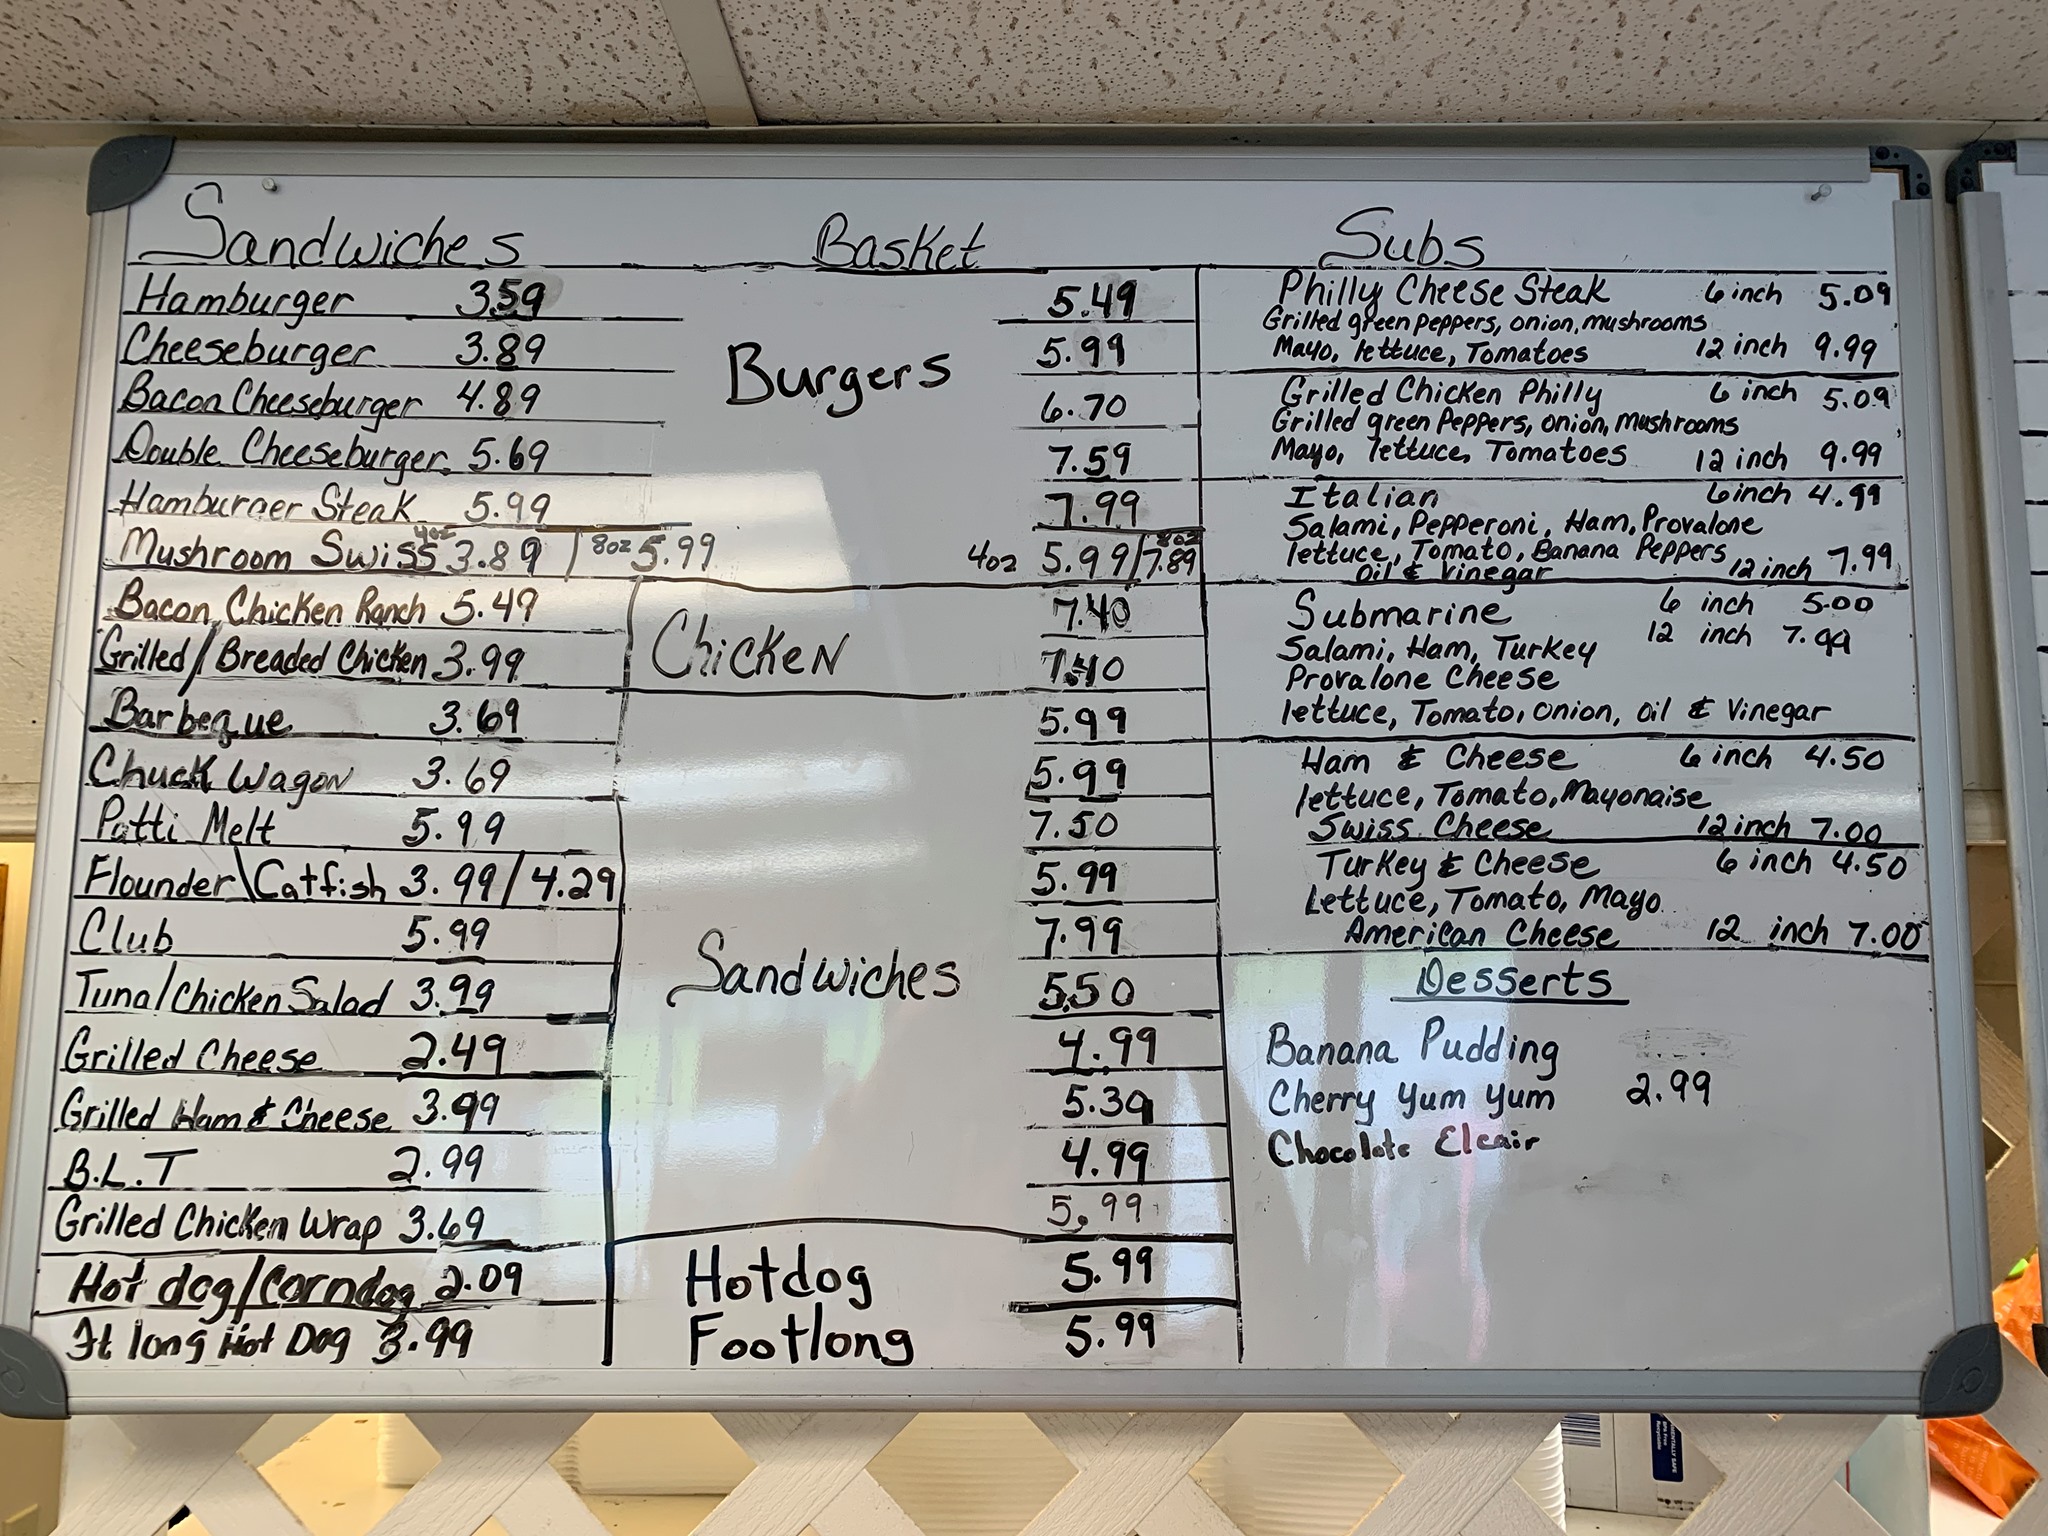 Sandwiches Basket Subs
Hamburger 3.59
Cheeseburger 3.89
Bacon Cheeseburger 4.89
Double Cheeseburger 5.69
Hamburger Steak 5.99
Mushroom Swiss 4oz 3.89 / 8oz 5.99
Bacon Chicken Ranch 5.49
Grilled/Breaded Chicken 3.99
Barbeque 3.69
Chuck Wagon 3.69
Patti Melt 5.99
Flounder\Catfish 3.99/4.29
Club 5.99
Tuna/Chicken Salad 3.99
Grilled Cheese 2.49
Grilled Ham & Cheese 3.99
B.L.T 2.99
Grilled Chicken Wrap 3.69
Hot dog/Corndog 2.09
Ft long Hot Dog 3.99
Burgers
5.49
5.99
6.70
7.59
7.99
4oz 5.99/8oz 7.89
Chicken
7.40
7.40
Sandwiches
5.99
5.99
7.50
5.99
7.99
5.50
4.99
5.39
4.99
5.99
Hotdog 5.99
Footlong 5.99
Philly Cheese Steak 6 inch 5.09
Grilled green peppers, onion, mushrooms
Mayo, lettuce, Tomatoes 12 inch 9.99
Grilled Chicken Philly 6 inch 5.09
Grilled green Peppers, onion, mushrooms
Mayo, lettuce, Tomatoes 12 inch 9.99
Italian 6 inch 4.99
Salami, Pepperoni, Ham, Provalone
lettuce, Tomato, Banana Peppers 12 inch 7.99
oil & Vinegar
Submarine 6 inch 5.00
12 inch 7.99
Salami, Ham, Turkey
Provalone Cheese
lettuce, Tomato, onion, oil & Vinegar
Ham & Cheese 6 inch 4.50
lettuce, Tomato, Mayonaise
Swiss Cheese 12 inch 7.00
Turkey & Cheese 6 inch 4.50
Lettuce, Tomato, Mayo
American Cheese 12 inch 7.00
Desserts
Banana Pudding
Cherry Yum Yum 2.99
Chocolate Elcair